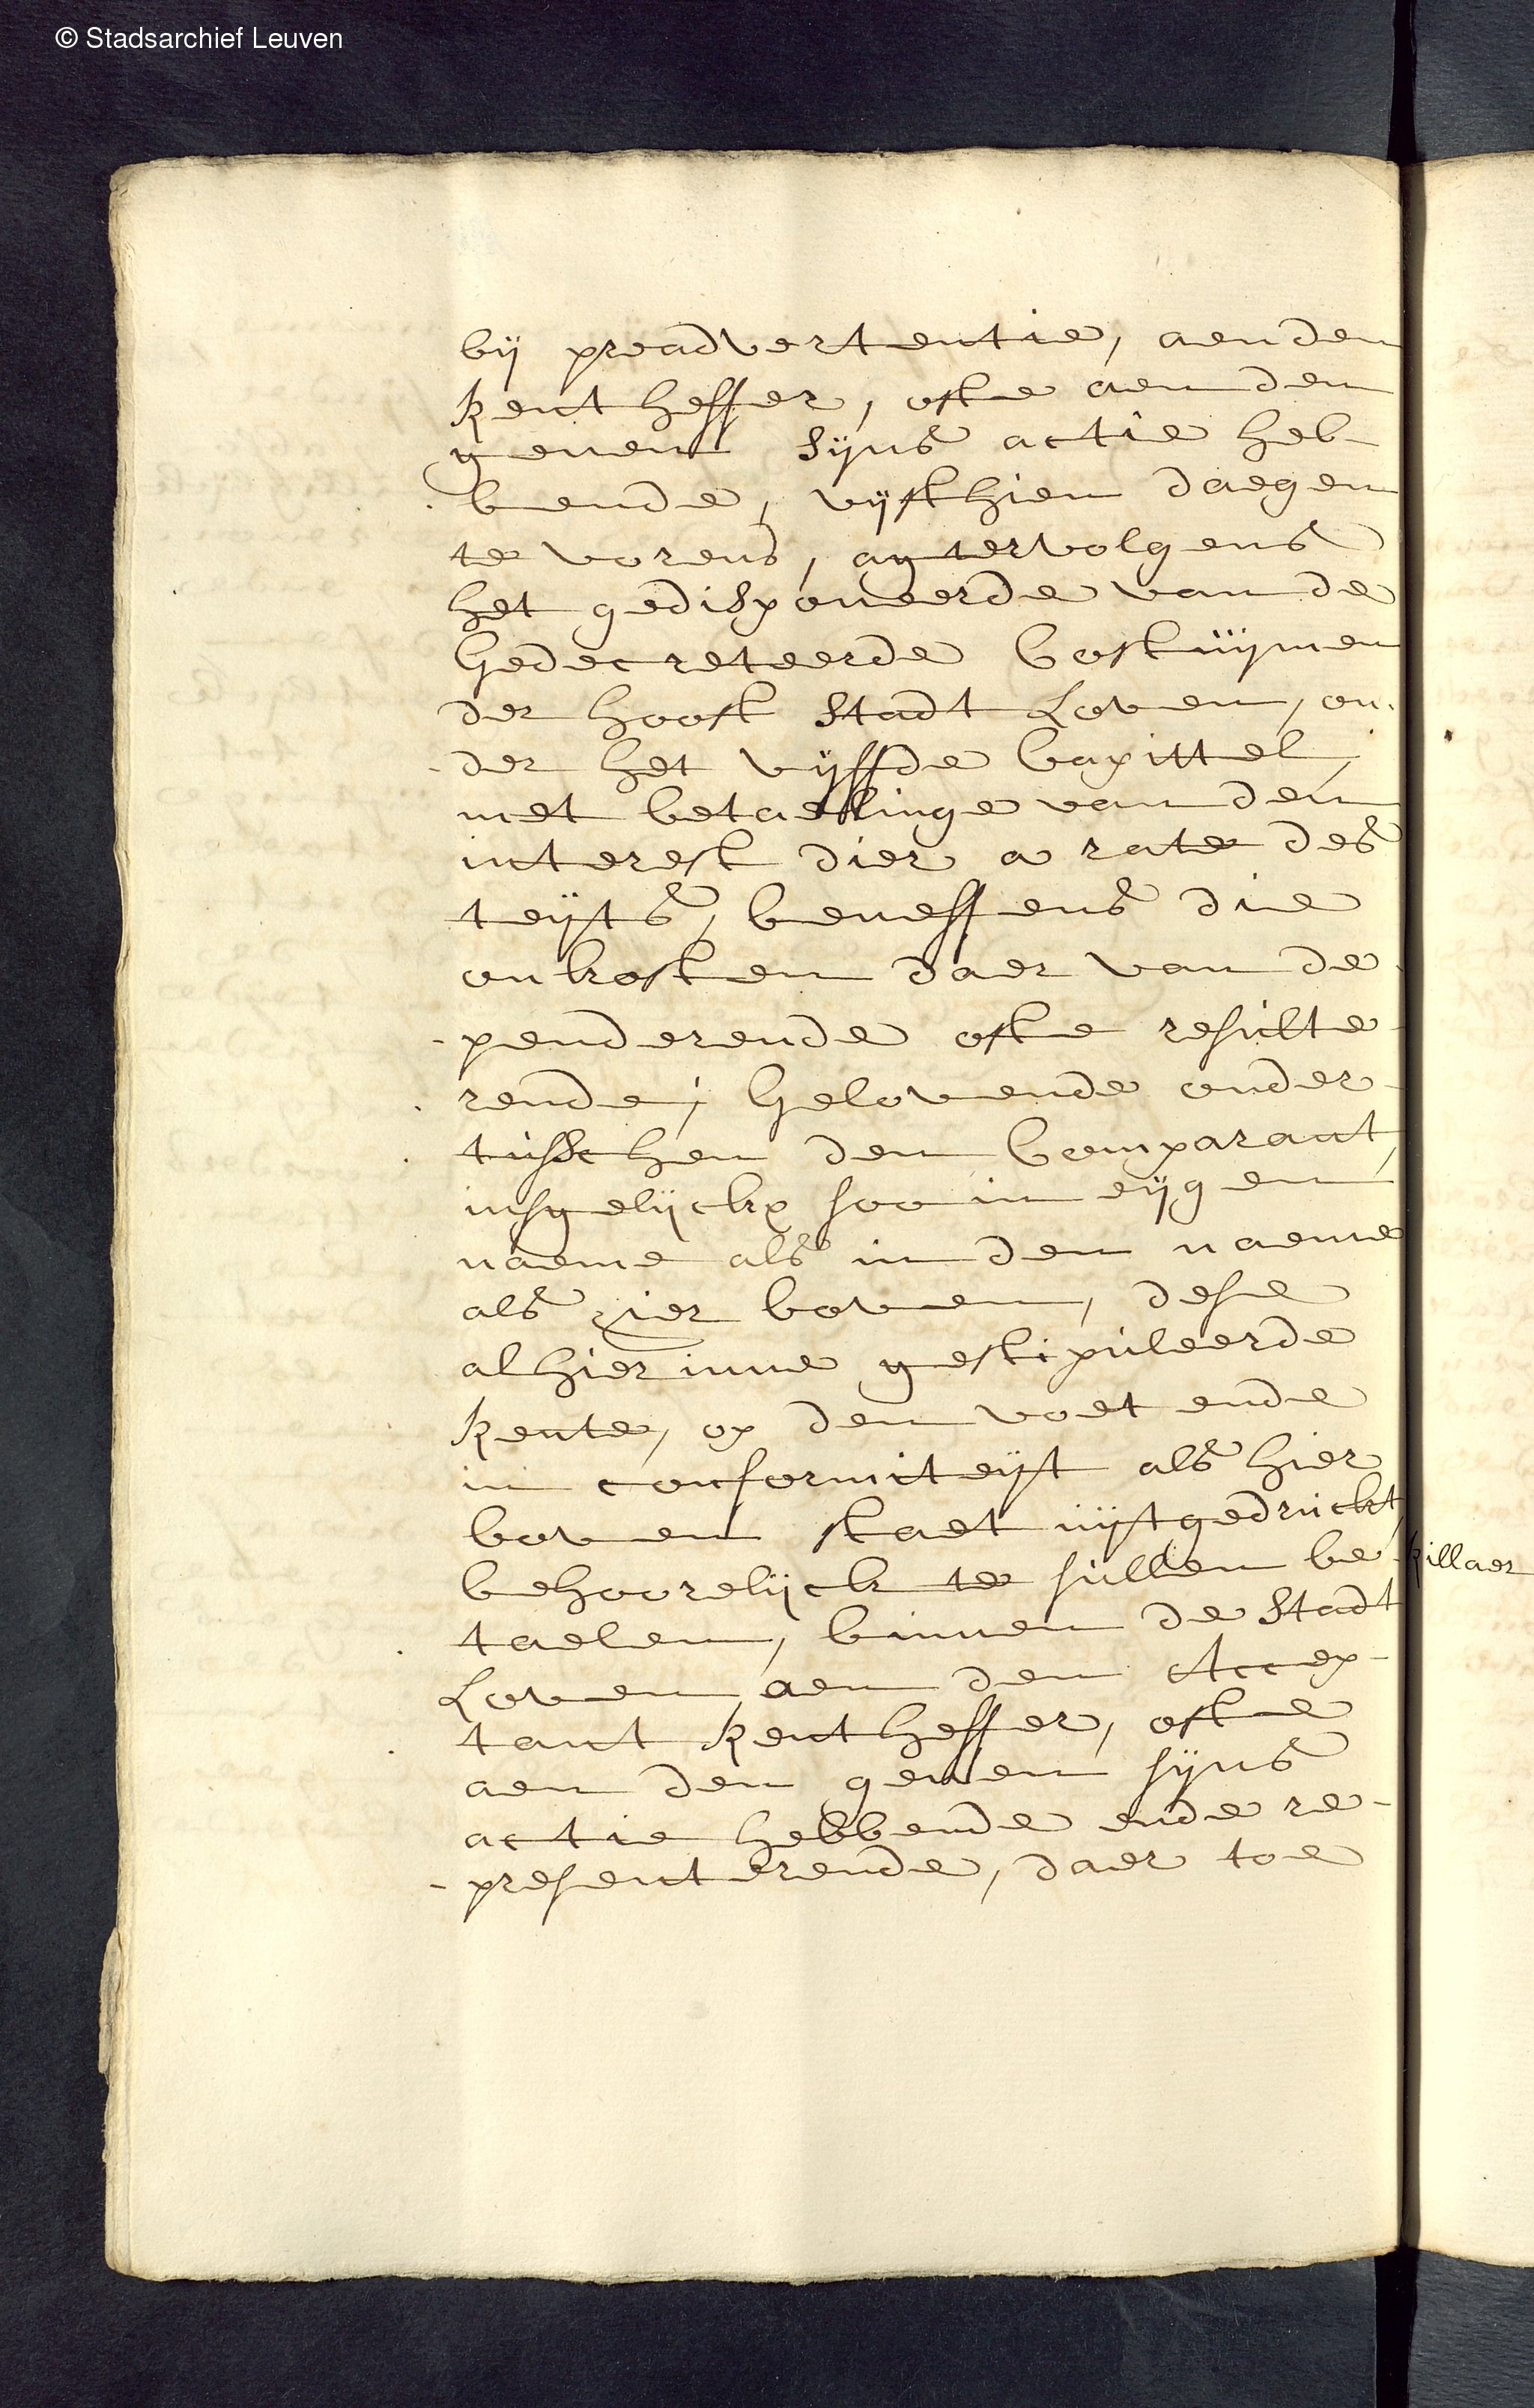 © Stadsarchief Leuven
bij preadvertentie, aenden
Rentheffer, ofte aenden
genen sijns actie heb-
bende, vijfthien daegen
te vorens, agtervolgens
het gedisponeerde vande
Gedecreteerde Costuijmen
der hooft Stadt Loven, on-
der het vijffde Capittel,
met betaelinge vanden
interest dier a rate des
teijts, beneffens die
onkosten daer van de-
penderende ofte resulte-
rende; Gelovende onder-
tusschen den Comparant,
insgelijckx soo in eijgen
naeme als inden naeme
als hier boven, dese
alhier inne gestipuleerde
Rente, op den voet ende
in conformiteijt als hier
boven staet uijtgedruckt,
behoorelijck te sullen be-
taelen, binnen de Stadt
Loven aen den Accep-
tant Rentheffer, ofte
aen den genen sijns
actie hebbende ende re-
presenterende, daer toe
pillaer